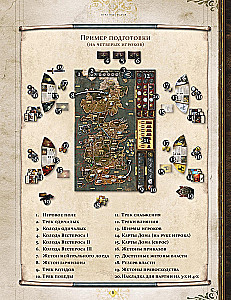 Пример подготовки
(на четверых игроков)
1. Игровое поле
2. Трек одичалых
3. Колода одичалых
4. Колода Вестероса I
5. Колода Вестероса II
6. Колода Вестероса III
7. Жетоны нейтрального лорда
8. Жетоны гарнизона
9. Трек раундов
10. Трек победы
11. Трек снабжения
12. Треки влияния
13. Ширмы игроков
14. Карты Дома (на руке игрока)
15. Карты Дома (сброс)
16. Жетоны приказов
17. Доступные жетоны власти
18. Резерв власти
19. Жетоны превосходства
20. Накладка для партии на 3х и 4х